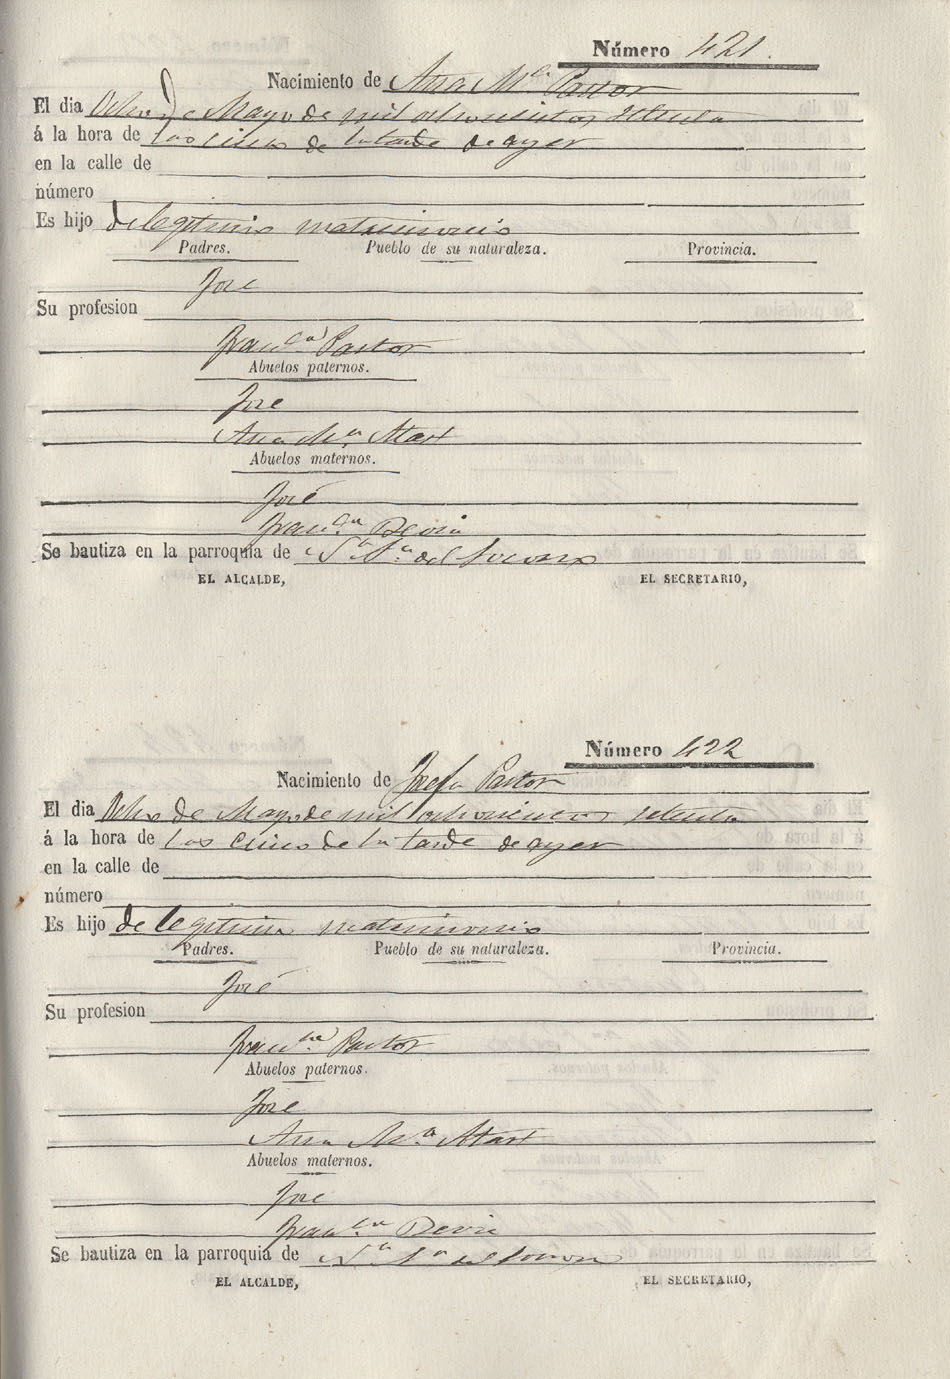 Número 421.
Nacimiento de Ana M.ª Pastor
El dia Ocho de Mayo de mil ochocientos setenta
á la hora de las cinco de la tarde de ayer
en la calle de
número
Es hijo de legitimo matrimonio
Padres. Pueblo de su naturaleza. Provincia.
José
Su profesion
Fran.ca Pastor
Abuelos paternos.
José
Ana M.ª
Abuelos maternos.
José
Fran.ca
Se bautiza en la parroquia de N.ª S.ª del Socorro
EL ALCALDE, EL SECRETARIO,
Número 422
Nacimiento de Josefa Pastor
El dia Ocho de Mayo de mil ochocientos setenta
á la hora de las cinco de la tarde de ayer
en la calle de
número
Es hijo de legitimo matrimonio
Padres. Pueblo de su naturaleza. Provincia.
José
Su profesion
Fran.ca Pastor
Abuelos paternos.
José
Ana M.ª
Abuelos maternos.
José
Fran.ca
Se bautiza en la parroquia de N.ª S.ª del Socorro
EL ALCALDE, EL SECRETARIO,